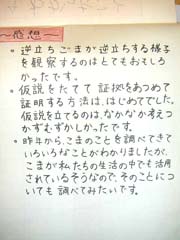 〜感想〜
• 逆立ちごまが逆立ちする様子
を観察するのはとてもおもしろ
かったです。
• 仮説をたてて 証拠をあつめて
証明する方法は、はじめてでした。
仮説を立てるのは、なかなか考えつ
かずむずかしかったです。
• 昨年から、こまのことを調べてきて
いろいろなことがわかりましたが、
こまが私たちの生活の中でも活用
されているそうなので、そのことにつ
いても調べてみたいです。